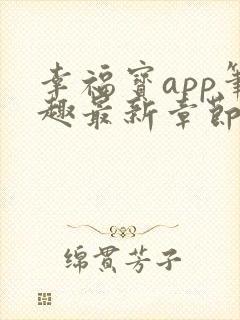 幸福宝app笔
趣最新章节
绵贯芳子